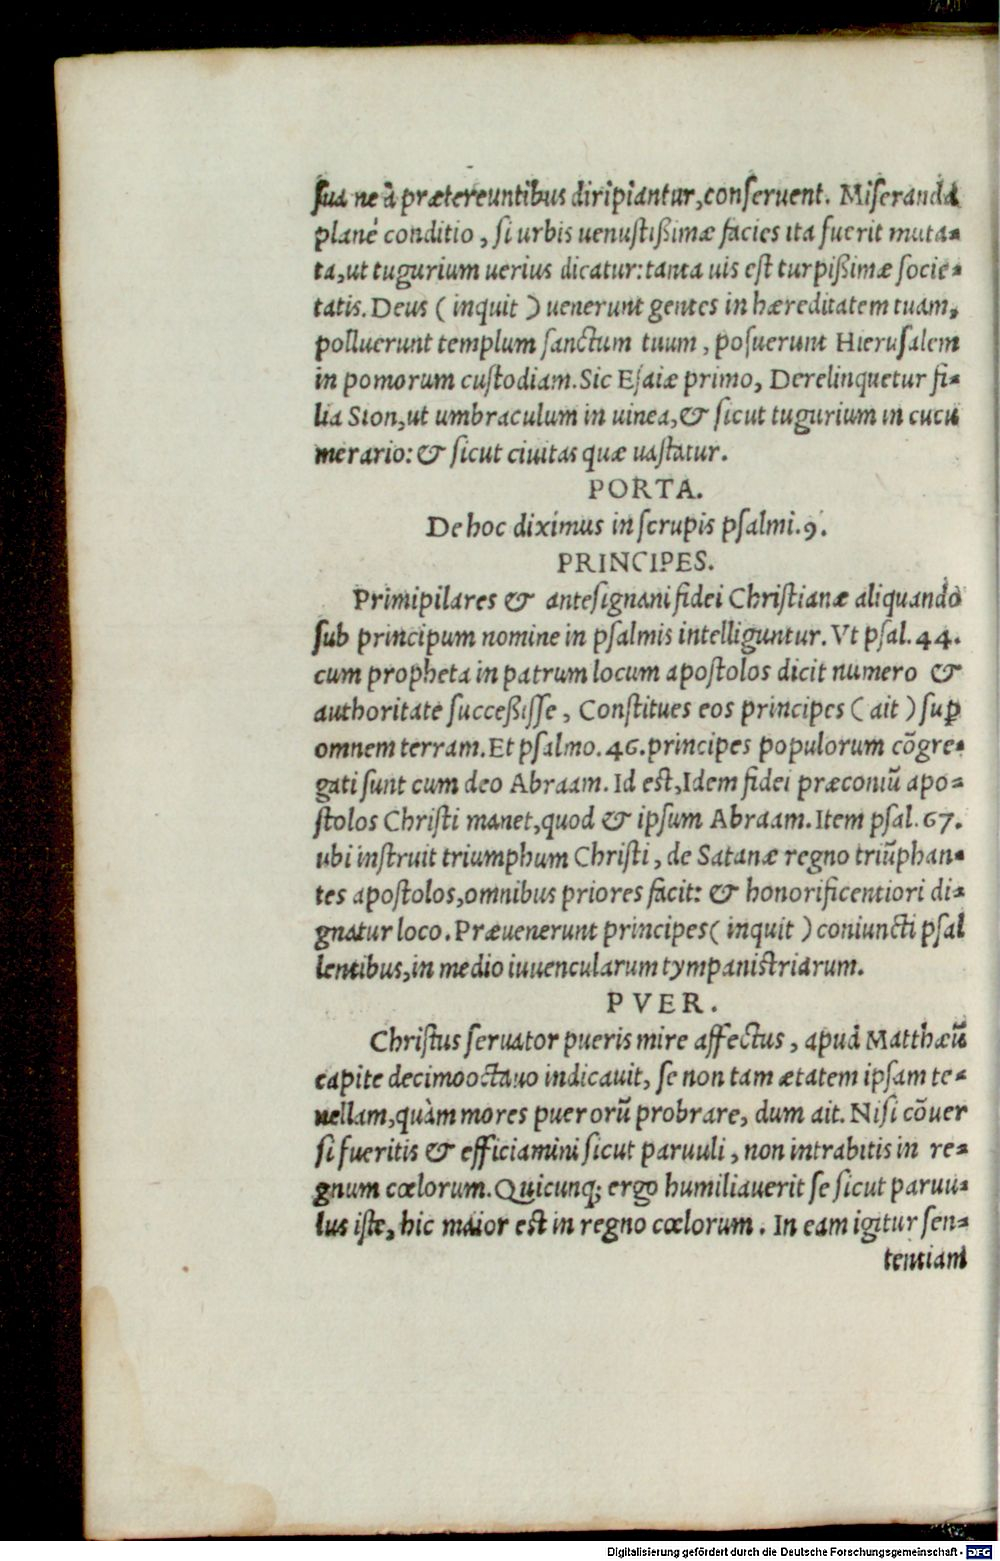 ſua ne à prætereuntibus diripiantur, conſeruent. Miſeranda
planè conditio, ſi urbis uenuſtißimæ facies ita fuerit muta-
ta, ut tugurium uerius dicatur: tanta uis eſt turpißimæ ſocie-
tatis. Deus (inquit) uenerunt gentes in hæreditatem tuam,
polluerunt templum ſanctum tuum, poſuerunt Hieruſalem
in pomorum cuſtodiam. Sic Eſaiæ primo, Derelinquetur fi-
lia Sion, ut umbraculum in uinea, & ſicut tugurium in cucu
merario: & ſicut ciuitas quæ uaſtatur.
PORTA.
De hoc diximus in ſcrupis pſalmi. 9.
PRINCIPES.
Primipilares & anteſignani fidei Chriſtianæ aliquando
ſub principum nomine in pſalmis intelliguntur. Vt pſal. 44.
cum propheta in patrum locum apoſtolos dicit numero &
authoritate ſucceßiſſe, Conſtitues eos principes (ait) ſup̱
omnem terram. Et pſalmo. 46. principes populorum cõgre-
gati ſunt cum deo Abraam. Id eſt, Idem fidei præconiũ apo-
ſtolos Chriſti manet, quod & ipſum Abraam. Item pſal. 67.
ubi inſtruit triumphum Chriſti, de Satanæ regno triũphan-
tes apoſtolos, omnibus priores facit: & honorificentiori di-
gnatur loco. Præuenerunt principes (inquit) coniuncti pſal
lentibus, in medio iuuencularum tympaniſtriarum.
PVER.
Chriſtus ſeruator pueris mire affectus, apud Matthæũ
capite decimooctauo indicauit, ſe non tam ætatem ipſam te-
nellam, quàm mores puerorũ probrare, dum ait. Niſi cõuer
ſi fueritis & efficiamini ſicut paruuli, non intrabitis in re-
gnum cœlorum. Quicunq; ergo humiliauerit ſe ſicut paruu-
lus iſte, hic maior eſt in regno cœlorum. In eam igitur ſen-
tentiam
Digitalisierung gefördert durch die Deutsche Forschungsgemeinschaft - DFG